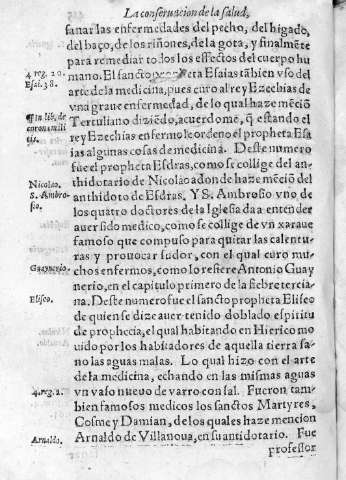 La conseruacion de la salud,
sanar las enfermedades del pecho, del higado,
del baço, de los riñones, de la gota, y finalmẽte
para remediar todos los effectos del cuerpo hu
4. reg. 20.
Esai. 38.
mano. El sancto propheta Esaias tãbien vso del
arte de la medicina, pues curo al rey Ezechias de
vna graue enfermedad, de lo qual haze mẽciõ
¶In lib. de
corona mili
tis.
Tertuliano diziẽdo, acuerdome, q̃ estando el
rey Ezechias enfermo le ordeno el propheta Esa
ias algunas cosas de medicina. Deste numero
fue el propheta Esdras, como se collige del an-
Nicolao.
thidotario de Nicolao adon de haze menciõ del
S. Ambro-
sio.
anthidoto de Esdras. Y S. Ambrosio vno de
los quatro doctores de la Iglesia da a entender
auer sido medico, como se collige de vn xaraue
famoso que compuso para quitar las calentu-
ras y prouocar sudor, con el qual curo mu-
Guaynerio.
chos enfermos, como lo refiere Antonio Guay
nerio, en el capitulo primero de la fiebre tercia-
Eliseo.
na. Deste numero fue el sancto propheta Eliseo
de quien se dize auer tenido doblado espiritu
de prophecia, el qual habitando en Hierico mo
uido por los habitadores de aquella tierra sa-
no las aguas malas. Lo qual hizo con el arte
de la medicina, echando en las mismas aguas
4. reg. 2.
vn vaso nueuo de varro con sal. Fueron tam-
bien famosos medicos los sanctos Martyres,
Cosme y Damian, de los quales haze mencion
Arnaldo.
Arnaldo de Villanoua, en su antidotario. Fue
professor